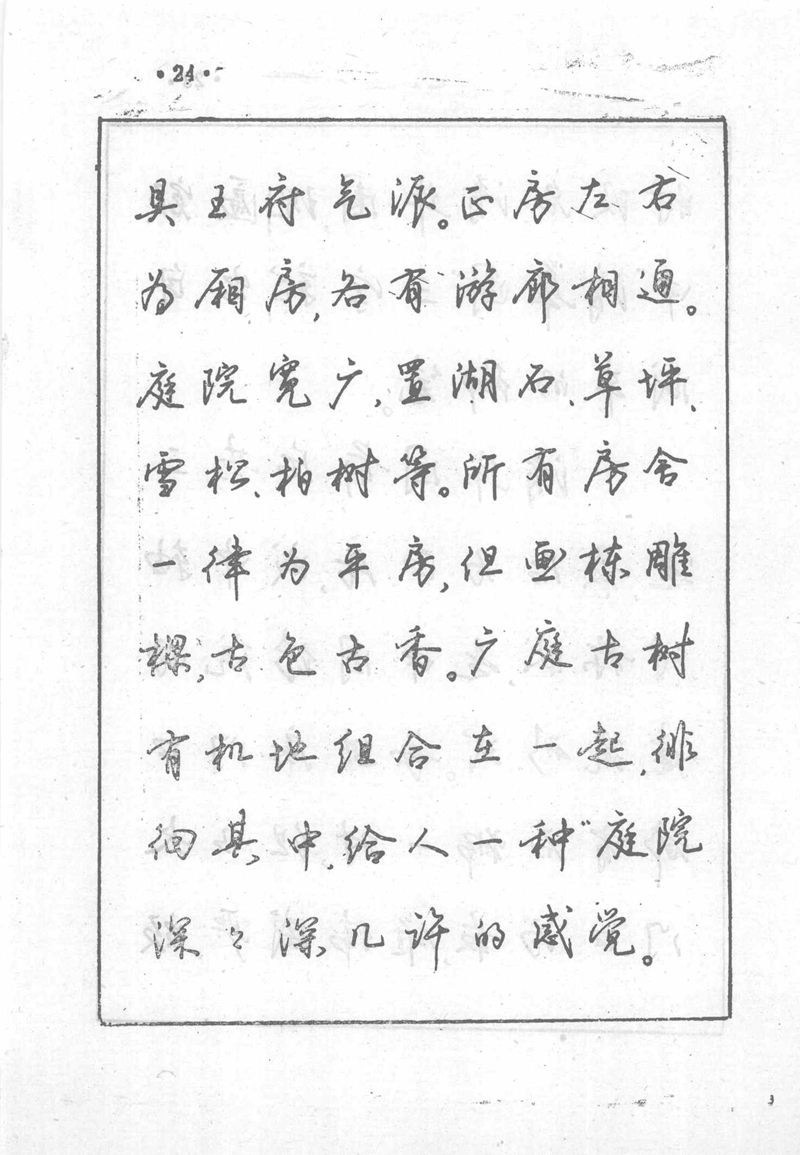 ·24·
具王府气派。正房左右
为厢房,各有游廊相通。
庭院宽广,置湖石、草坪、
雪松、柏树等。所有房舍
一律为平房,但画栋雕
樑,古色古香。广庭古树
有机地组合。在一起,徘
徊其中,给人一种“庭院
深々深几许的感觉。